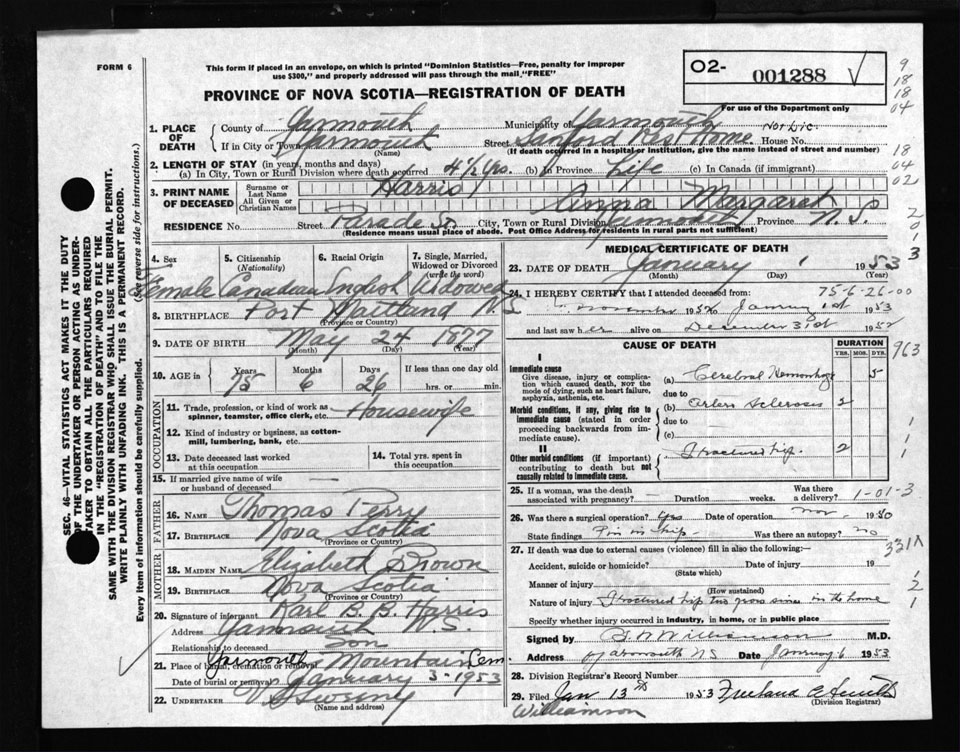 FORM 6
This form if placed in an envelope, on which is printed "Dominion Statistics—Free, penalty for improper
use $300," and properly addressed will pass through the mail "FREE"
PROVINCE OF NOVA SCOTIA—REGISTRATION OF DEATH
O2- 001288 ✓
For use of the Department only
1. PLACE OF DEATH { County of Yarmouth Municipality of Yarmouth
If in City or Town Yarmouth Street Rest Home. House No. Not Lic.
(Name) (If death occurred in a hospital or institution, give the name instead of street and number)
2. LENGTH OF STAY (in years, months and days)
(a) In City, Town or Rural Division where death occurred 4½ yrs. (b) In Province Life (c) In Canada (if immigrant)
3. PRINT NAME OF DECEASED { Surname or Last Name Harris
All Given or Christian Names Anna Margaret
RESIDENCE No. Street Parade St. City, Town or Rural Division Yarmouth Province N. S.
(Residence means usual place of abode. Post Office Address for residents in rural parts not sufficient)
4. Sex 5. Citizenship (Nationality) 6. Racial Origin 7. Single, Married, Widowed or Divorced (write the word)
Female Canadian English Widowed
8. BIRTHPLACE Port Maitland N.S.
(Province or Country)
9. DATE OF BIRTH May 24 1877
(Month) (Day) (Year)
10. AGE in { Years Months Days If less than one day old
75 6 26 hrs. or min.
OCCUPATION
11. Trade, profession, or kind of work as spinner, teamster, office clerk, etc. Housewife
12. Kind of industry or business, as cotton-mill, lumbering, bank, etc.
13. Date deceased last worked at this occupation
14. Total yrs. spent in this occupation
15. If married give name of wife or husband of deceased
FATHER
16. NAME Thomas Perry
17. BIRTHPLACE Nova Scotia
(Province or Country)
MOTHER
18. MAIDEN NAME Elizabeth Brown
19. BIRTHPLACE Nova Scotia
(Province or Country)
20. Signature of informant Karl B. B. Harris
Address Yarmouth N.S.
Relationship to deceased Son
21. Place of burial, cremation or removal Yarmouth Mountain Cem.
Date of burial or removal January 3-1953
22. UNDERTAKER Sweeny
(Name and address)
MEDICAL CERTIFICATE OF DEATH
23. DATE OF DEATH January 1 1953
(Month) (Day) (Year)
75-6-26-00
24. I HEREBY CERTIFY that I attended deceased from:
November 1952 to January 1st 1953
and last saw her alive on December 31st 1952
CAUSE OF DEATH DURATION
YRS. MOS. DYS.
I
Immediate cause
Give disease, injury or complication which caused death, NOT the mode of dying, such as heart failure, asphyxia, asthenia, etc.
(a) Cerebral Hemorrhage 5
due to
Morbid conditions, if any, giving rise to immediate cause (stated in order proceeding backwards from immediate cause).
(b) Arterio Sclerosis 2
due to
(c)
II
Other morbid conditions (if important) contributing to death but not causally related to immediate cause.
Fractured hip. 2
25. If a woman, was the death associated with pregnancy? Duration weeks. Was there a delivery? 1-01-3
26. Was there a surgical operation? Yes Date of operation Nov. 1950
State findings Pin in hip. Was there an autopsy? no
27. If death was due to external causes (violence) fill in also the following:—
Accident, suicide or homicide? Date of injury 19
(State which)
Manner of injury
(How sustained)
Nature of injury Fractured hip two years since in the home
Specify whether injury occurred in industry, in home, or in public place
Signed by Williamson M.D.
Address Yarmouth NS Date January 6 1953
28. Division Registrar's Record Number
29. Filed Jan 13th 1953 Freeland A Smith
(Division Registrar)
Williamson
SEC. 46—VITAL STATISTICS ACT MAKES IT THE DUTY
OF THE UNDERTAKER OR PERSON ACTING AS UNDER-
TAKER TO OBTAIN ALL THE PARTICULARS REQUIRED
IN THE "REGISTRATION OF DEATH" AND TO FILE THE
SAME WITH THE DIVISION REGISTRAR WHO SHALL ISSUE THE BURIAL PERMIT.
WRITE PLAINLY WITH UNFADING INK. THIS IS A PERMANENT RECORD.
Every item of information should be carefully supplied. (See reverse side for instructions.)
9
18
18
04
18
04
02
2
0
1
3
963
1
1
1
1
2
1